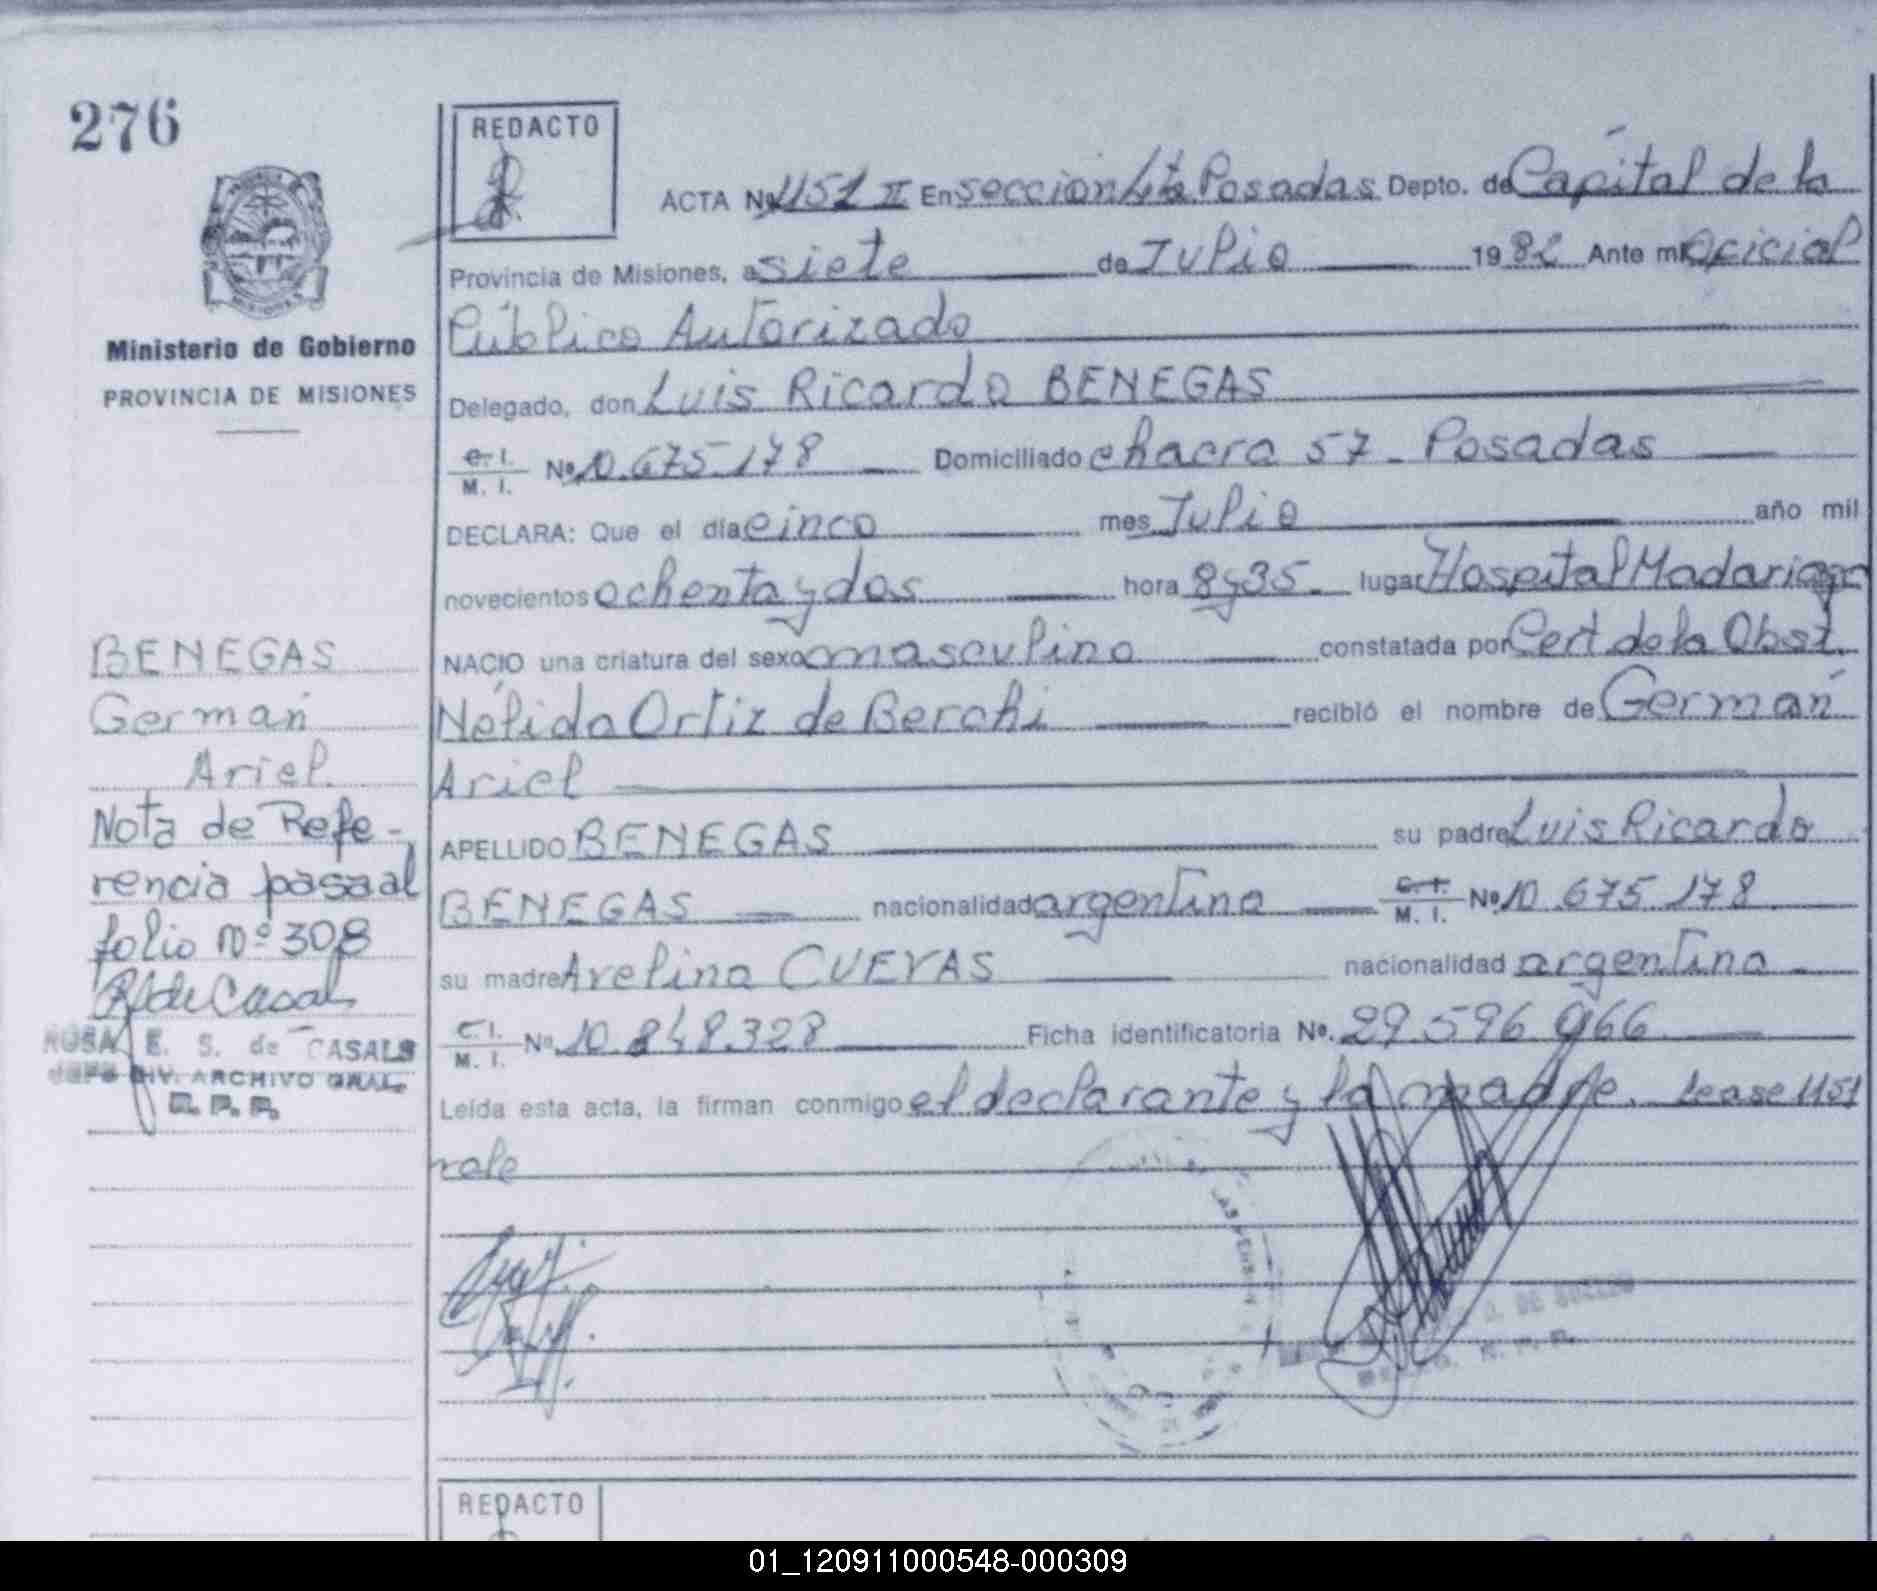 276
REDACTO
ACTA Nº 1151 II En sección 4ta Posadas Depto. de Capital de la
Provincia de Misiones, a siete de Julio 1982 Ante mi Oficial
Público Autorizado
Delegado, don Luis Ricardo BENEGAS
C. I. / M. I. Nº 10.675.178 Domiciliado chacra 57 - Posadas
DECLARA: Que el día cinco mes Julio año mil
novecientos ochenta y dos hora 8 y 35 - lugar Hospital Madariaga
NACIO una criatura del sexo masculino constatada por Cert de la Obst.
Nélida Ortiz de Berchi recibió el nombre de Germán
Ariel
APELLIDO BENEGAS su padre Luis Ricardo
BENEGAS nacionalidad argentina C. I. / M. I. Nº 10.675.178
su madre Avelina CUEVAS nacionalidad argentina
C. I. / M. I. Nº 10.848.328 Ficha identificatoria Nº. 29.596.966
Leída esta acta, la firman conmigo el declarante y la madre. Lease 1151
vale
Ministerio de Gobierno
PROVINCIA DE MISIONES
BENEGAS
Germán
Ariel.
Nota de Refe-
rencia pasa al
folio Nº 308
R de Casals
ROSA E. S. de CASALS
JEFE DIV. ARCHIVO GRAL.
R. P. P.
REDACTO
01_120911000548-000309